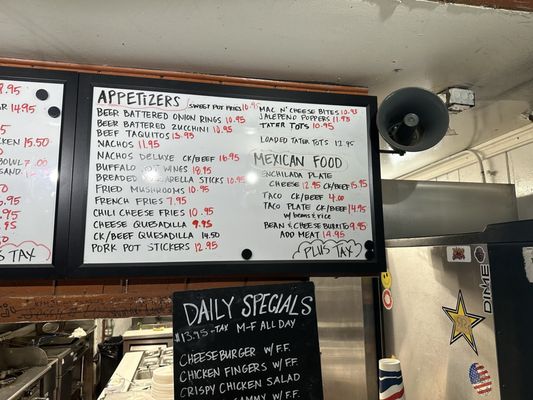 8.95
AR 14.95
.95
15.50
KEN
BOWL 7.00
SAND.
PLUS TAX
APPETIZERS SWEET POT FRIES 10.95
BEER BATTERED ONION RINGS 10.95
BEER BATTERED ZUCCHINI 10.95
BEEF TAQUITOS 13.95
NACHOS 11.95
NACHOS DELUXE CK/BEEF 16.95
BUFFALO HOT WINGS 18.95
BREADED MOZZARELLA STICKS 10.95
FRIED MUSHROOMS 10.95
FRENCH FRIES 7.95
CHILI CHEESE FRIES 10.95
CHEESE QUESADILLA 9.95
CK/BEEF QUESADILLA 14.50
PORK POT STICKERS 12.95
MAC N' CHEESE BITES 10.95
JALAPENO POPPERS 11.95
TATER TOTS 10.95
LOADED TATER TOTS 12.95
MEXICAN FOOD
ENCHILADA PLATE
CHEESE 12.95 CK/BEEF 15.95
TACO CK/BEEF 4.00
TACO PLATE CK/BEEF 14.95
w/ beans & rice
BEAN & CHEESE BURRITO 9.95
ADD MEAT 14.95
PLUS TAX
DAILY SPECIALS
$13.95+TAX M-F ALL DAY
CHEESEBURGER W/F.F.
CHICKEN FINGERS W/F.F.
CRISPY CHICKEN SALAD
SAMMY W/F.F.
DIME